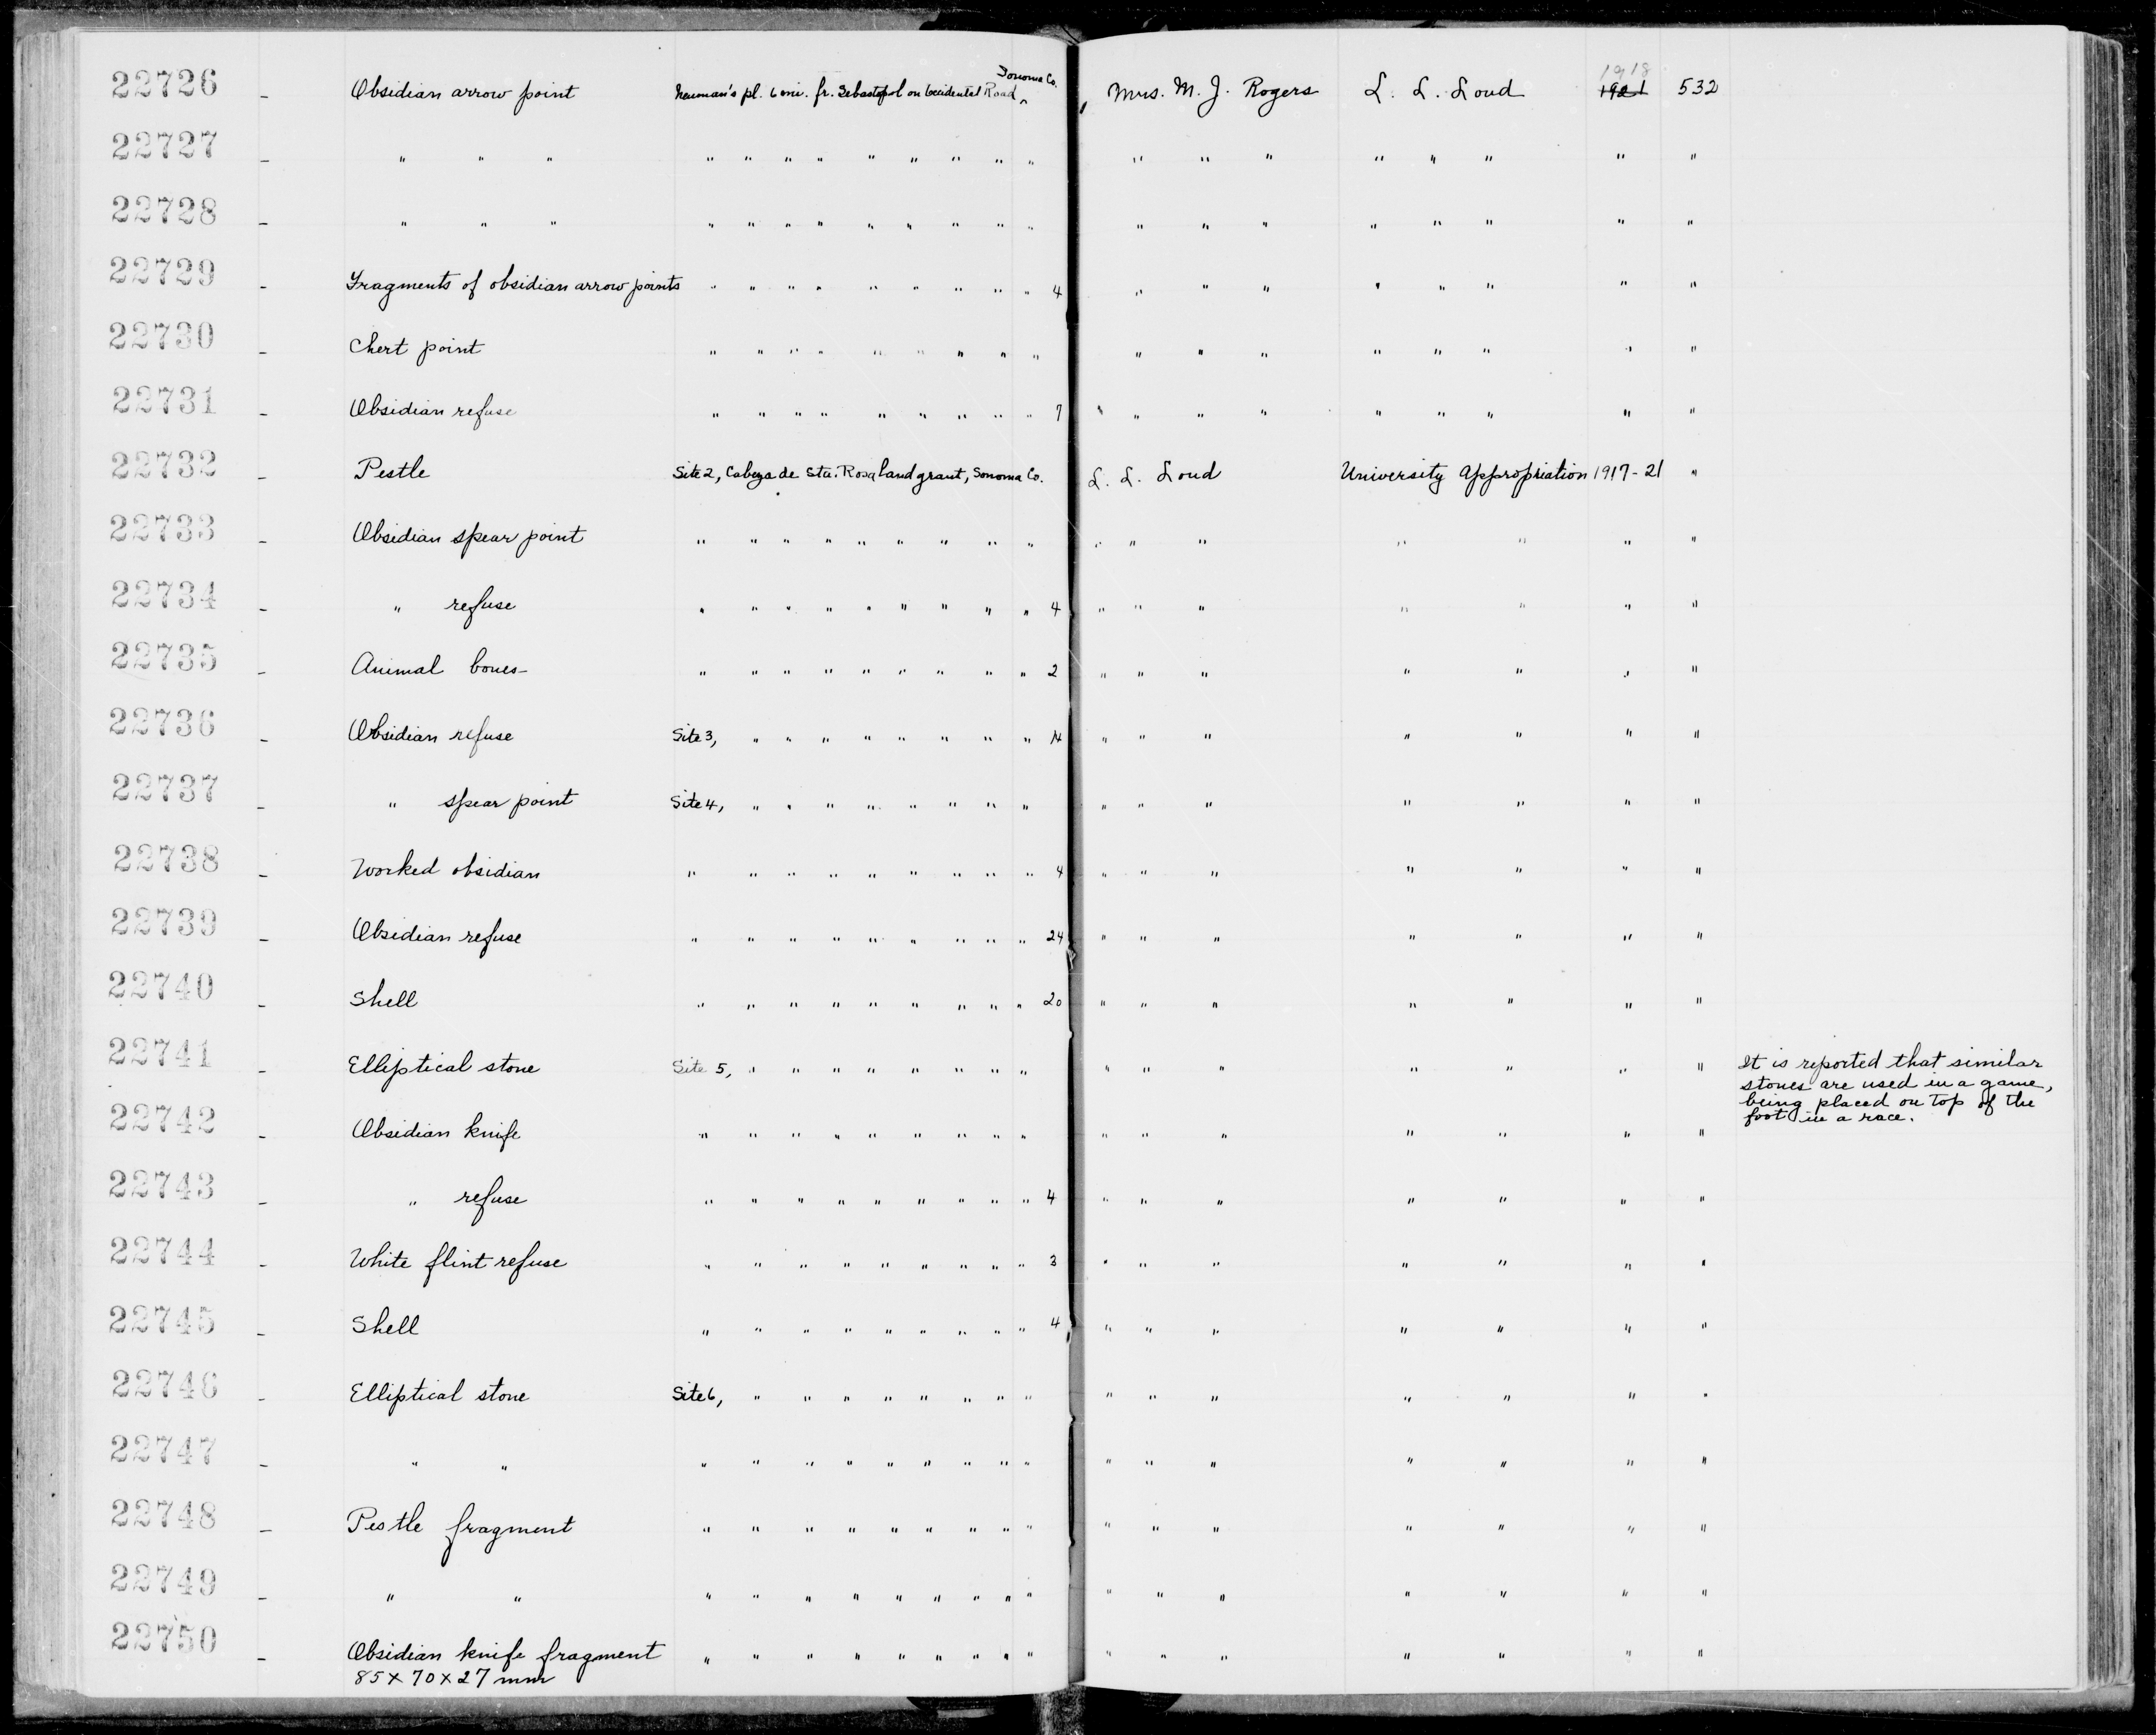 22726 - Obsidian arrow point Neuman's pl. 6 mi. fr. Sebastopol on Occidental Road, Sonoma Co. Mrs. M. J. Rogers L. L. Loud 1921 1918 532
22727 - " " " " " " " " " " " " " " " " " " " "
22728 - " " " " " " " " " " " " " " " " " " " "
22729 - Fragments of obsidian arrow points " " " " " " " " " 4 " " " " " " " "
22730 - Chert point " " " " " " " " " " " " " " " " "
22731 - Obsidian refuse " " " " " " " " " 7 " " " " " " " "
22732 - Pestle Site 2, Cabeza de Sta. Rosa land grant, Sonoma Co. L. L. Loud University Appropriation 1917-21 "
22733 - Obsidian spear point " " " " " " " " " " " " " " " "
22734 - " refuse " " " " " " " " " 4 " " " " " " "
22735 - Animal bones " " " " " " " " " 2 " " " " " " "
22736 - Obsidian refuse Site 3, " " " " " " " " 14 " " " " " " "
22737 - " spear point Site 4, " " " " " " " " " " " " " " "
22738 - Worked obsidian " " " " " " " " " 4 " " " " " " "
22739 - Obsidian refuse " " " " " " " " " 24 " " " " " " "
22740 - Shell " " " " " " " " " 20 " " " " " " "
22741 - Elliptical stone Site 5, " " " " " " " " " " " " " " " It is reported that similar
stones are used in a game,
being placed on top of the
foot in a race.
22742 - Obsidian knife " " " " " " " " " " " " " " " "
22743 - " refuse " " " " " " " " " 4 " " " " " " "
22744 - White flint refuse " " " " " " " " " 3 " " " " " " "
22745 - Shell " " " " " " " " " 4 " " " " " " "
22746 - Elliptical stone Site 6, " " " " " " " " " " " " " " "
22747 - " " " " " " " " " " " " " " " " " "
22748 - Pestle fragment " " " " " " " " " " " " " " " "
22749 - " " " " " " " " " " " " " " " " " "
22750 - Obsidian knife fragment " " " " " " " " " " " " " " " "
85 x 70 x 27 mm